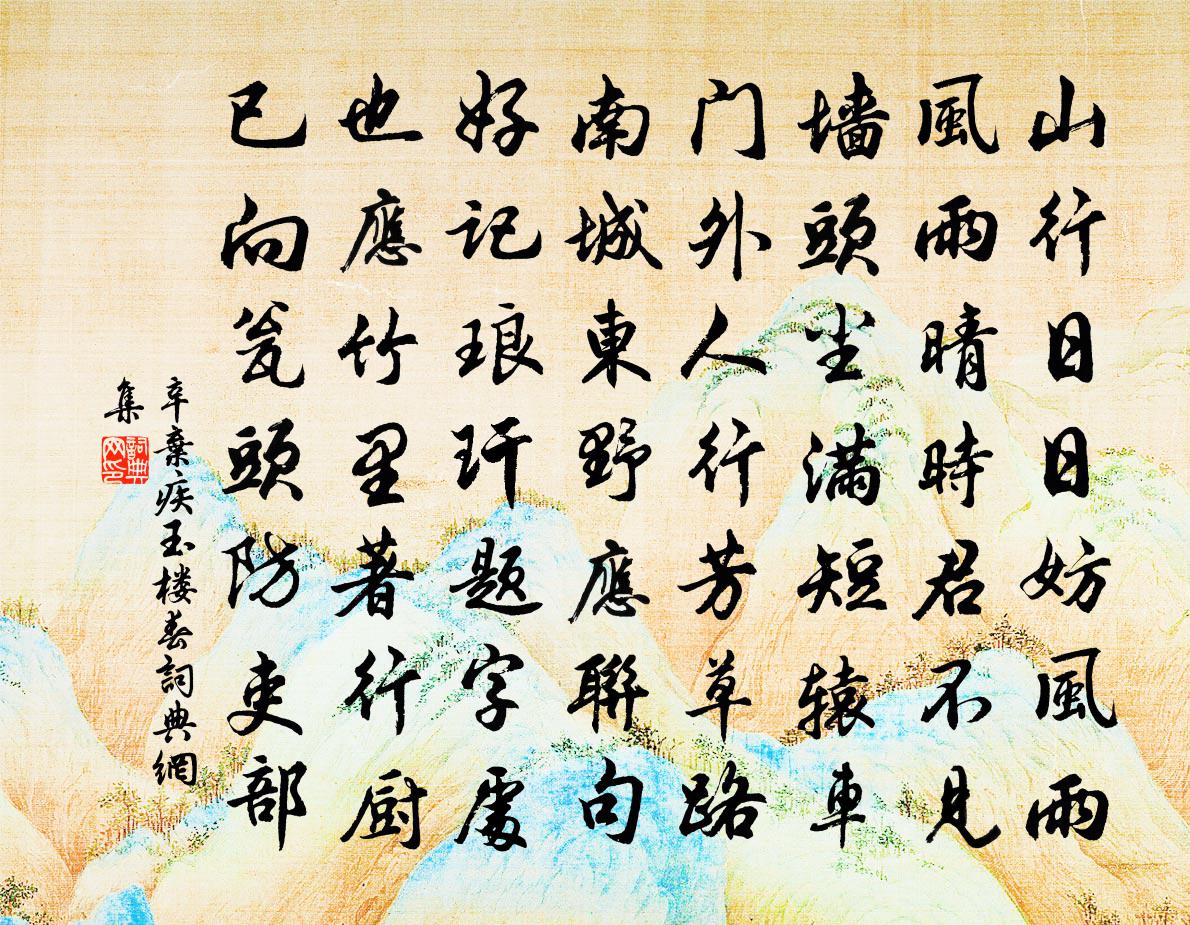 山行日日妨風雨
風雨晴時君不見
墙頭尘满短辕車
门外人行芳草路
南城東野應聯句
好記琅玕题字處
也應竹里著行厨
已向瓮頭防吏部
辛棄疾玉楼春詞典網
集
詞典網印